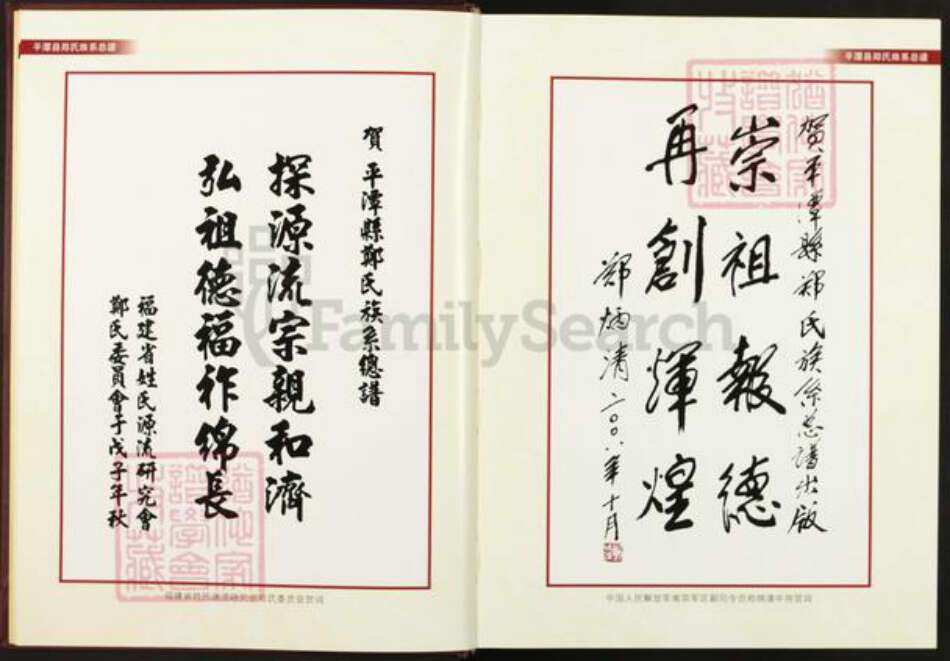 平潭县郑氏族系总谱
賀平潭縣鄭氏族系總譜
探源流宗親和濟
弘祖德福祚绵長
福建省姓氏源流研究會
鄭氏委員會于戊子年秋
平潭县郑氏族系总谱
贺平潭縣郑氏族系总谱出版
崇祖報德
再創輝煌
郑炳清二〇〇八年十月
FamilySearch